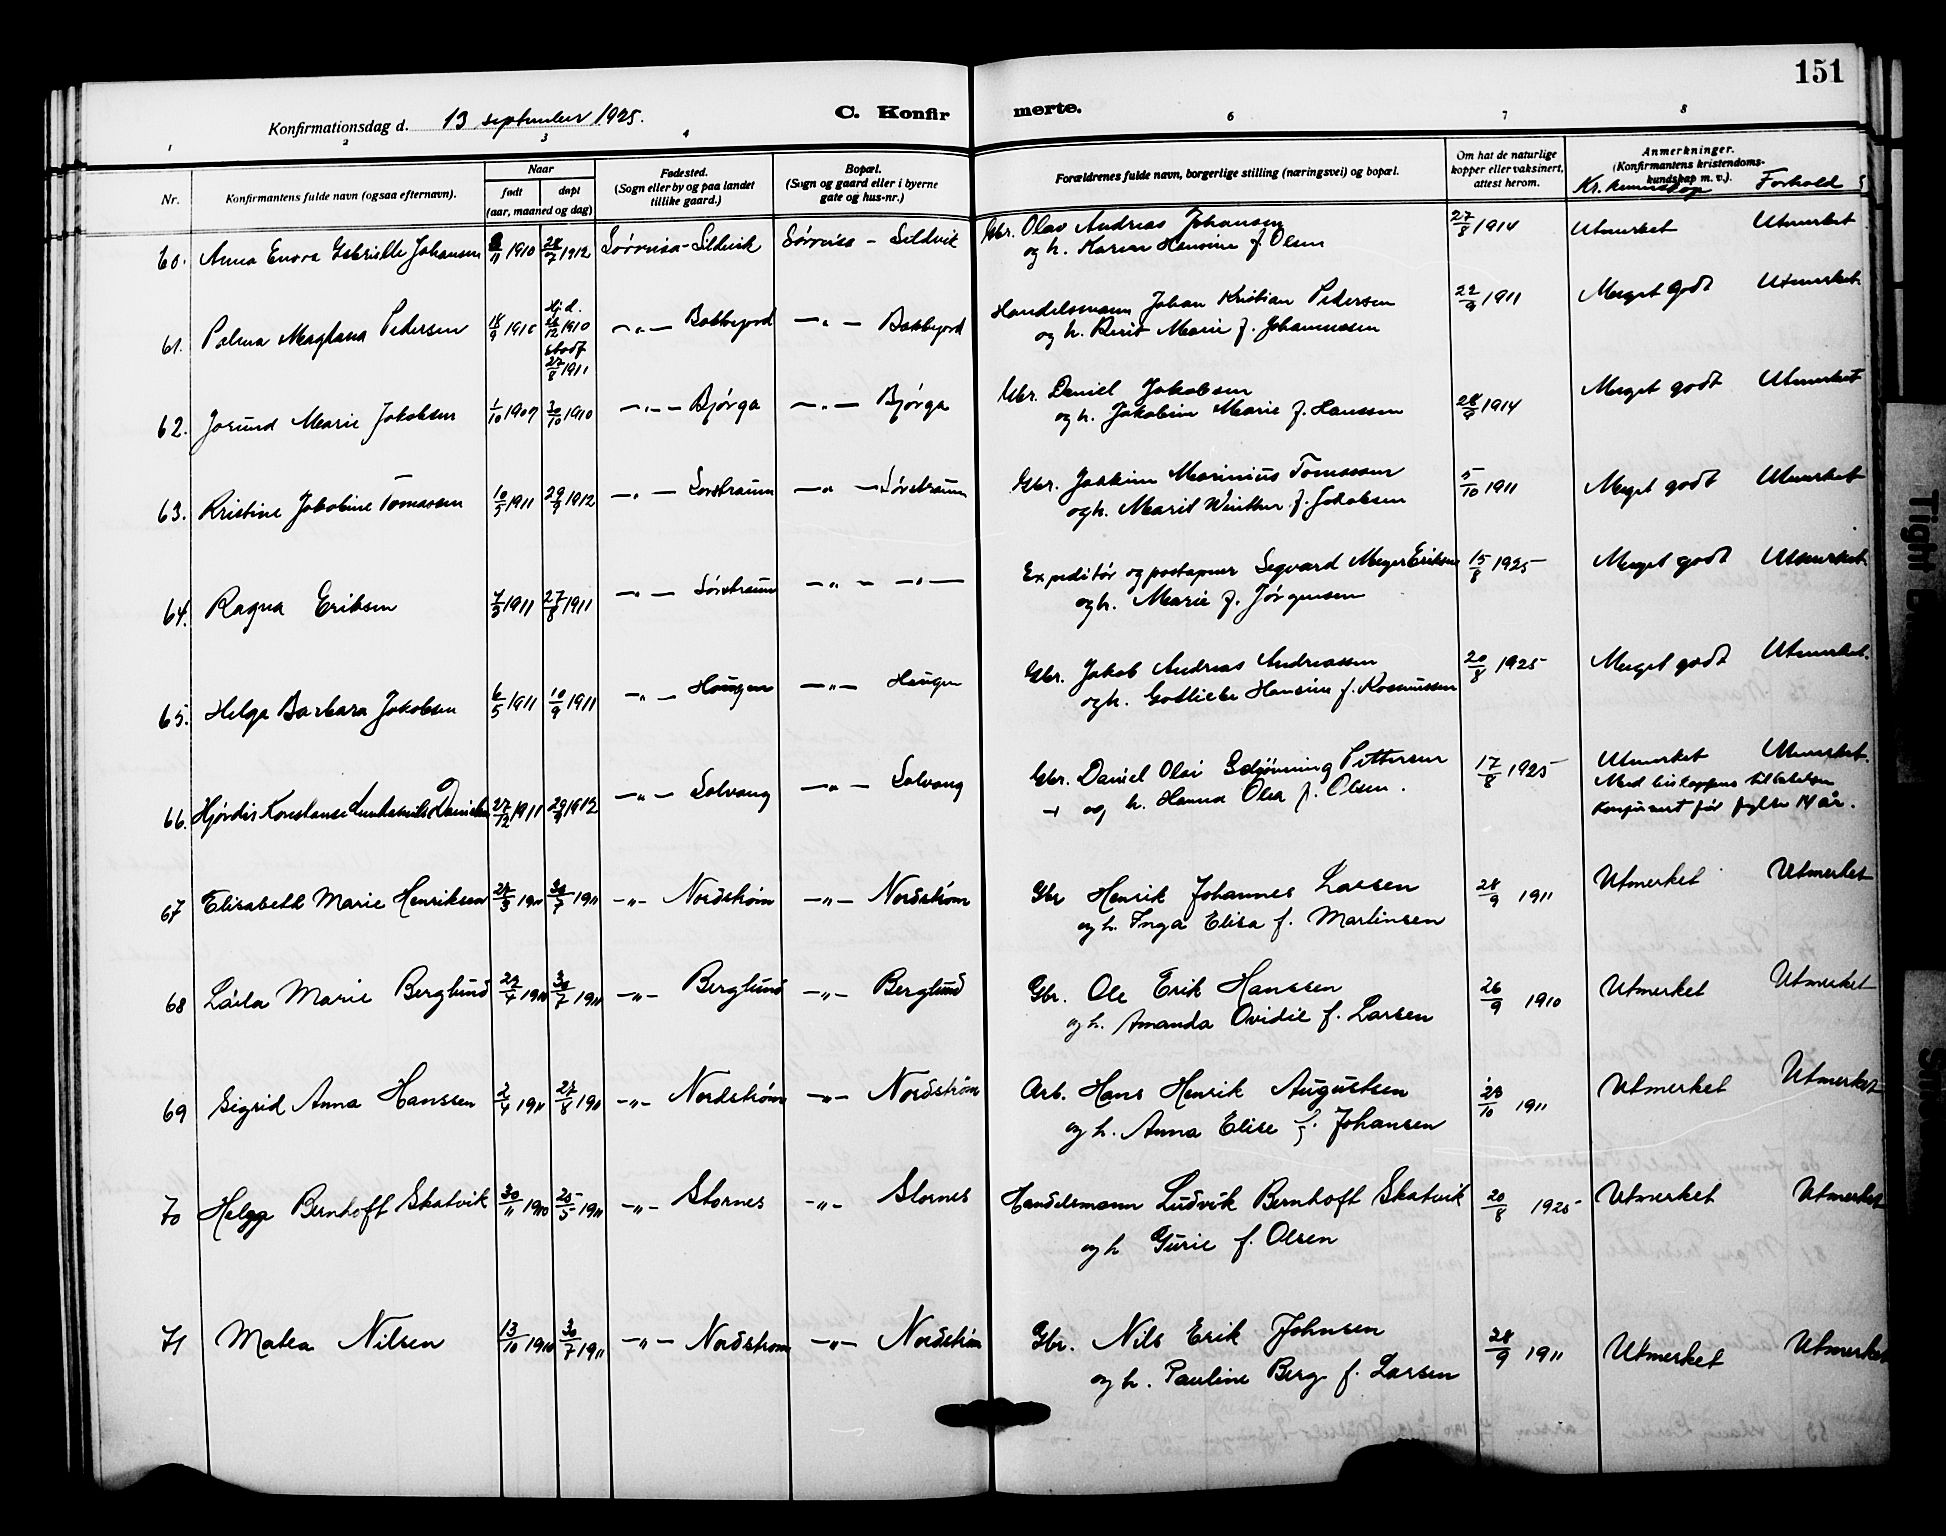 151
Konfirmationsdag d. 13 september 1925.
C. Konfir merte.
1 2 3 4 6 7 8
Nr.
Konfirmantens fulde navn (ogsaa efternavn).
Naar
født døpt
(aar, maaned og dag)
Fødested.
(Sogn eller by og paa landet
tillike gaard.)
Bopæl.
(Sogn og gaard eller i byerne
gate og hus-nr.)
Forældrenes fulde navn, borgerlige stilling (næringsvei) og bopæl.
Om hat de naturlige
kopper eller vaksinert,
attest herom.
Anmerkninger.
(Konfirmantens kristendoms-
kundskap m. v.).
Kr. kunnskap Forhold
60. Anna Enora Gabrielle Johansen 11 1910 28/7 1912 Sørreisa - Sildvik Sørreisa - Sildvik Gbr. Olav Andreas Johansen 27/8 1914 Utmerket Utmerket
og h. Karen Hansine f. Olsen
61. Palma Magdana Pedersen 18/9 1910 Hj.d. 26/12 1910 stadf 27/8 1911 -„- Bakkejord -„- Bakkejord Handelsmann Johan Kristian Pedersen 22/9 1911 Meget godt Utmerket
og h. Berit Marie f. Johannessen
62. Jorund Marie Jakobsen 1/10 1909 30/10 1910 -„- Bjørga -„- Bjørga Gbr. Daniel Jakobsen 28/9 1914 Meget godt Utmerket
og h. Jakobine Marie f. Hanssen
63. Kristine Jakobine Tomassen 10/5 1911 29/9 1912 -„- Sørstraum -„- Sørstraum Gbr. Joakim Marinius Tomassen 5/10 1911 Meget godt Utmerket
og h. Marit Winther f. Jakobsen
64. Ragna Eriksen 7/3 1911 27/8 1911 -„- Sørstraum -„- -„- Expeditør og postapner Segvard Meyer Eriksen 15/8 1925 Meget godt Utmerket
og h. Marie f. Jørgensen
65. Helga Barbara Jakobsen 6/5 1911 10/9 1911 -„- Haugen -„- Haugen Gbr. Jakob Andreas Andreassen 20/8 1925 Meget godt Utmerket.
og h. Gotliebe Hansine f. Rasmussen
66. Hjørdis Konstanse Danielsen 27/12 1911 29/9 1912 -„- Solvang -„- Solvang Gbr. Daniel Olai Pettersen 17/8 1925 Utmerket Utmerket.
og h. Hanna Olea f. Olsen. Med biskoppens tillatelse
konfirmert før fylte 14 år.
67 Elisabeth Marie Henriksen 24/3 1911 30/7 1911 -„- Nordstrøm -„- Nordstrøm Gbr Henrik Johannes Larsen 28/9 1911 Utmerket Utmerket
og h. Inga Elisa f. Martinsen
68 Laila Marie Berglund 29/4 1911 30/7 1911 -„- Berglund -„- Berglund Gbr. Ole Erik Hanssen 26/9 1910 Utmerket Utmerket
og h. Amanda Ovidie f. Larsen
69 Sigrid Anna Hanssen 2/4 1911 27/8 1911 -„- Nordstrøm -„- Nordstrøm Arb. Hans Henrik Augustsen 23/10 1911 Utmerket Utmerket
og h. Anna Elise f. Johansen
70 Helga Bernhoft Skatvik 30/11 1910 25/5 1911 -„- Stornes -„- Stornes Handelsmann Ludvik Bernhoft Skatvik 20/8 1925 Utmerket Utmerket
og h Gurie f. Olsen
71 Matea Nilsen 13/10 1910 30/7 1911 -„- Nordstrøm -„- Nordstrøm Gbr. Nils Erik Johnsen 28/9 1911 Utmerket Utmerket
og h. Pauline Berg f. Larsen